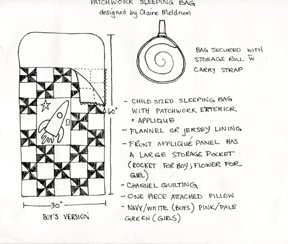 PATCHWORK SLEEPING BAG
designed by Claire Meldrum
BAG SECURED WITH
STORAGE ROLL &
CARRY STRAP
60"
- CHILD SIZED SLEEPING BAG
WITH PATCHWORK EXTERIOR
+ APPLIQUE
- FLANNEL OR JERSEY LINING
- FRONT APPLIQUE PANEL HAS
A LARGE STORAGE POCKET
(ROCKET FOR BOY; FLOWER FOR
GIRL)
- CHANNEL QUILTING
- ONE PIECE ATTACHED PILLOW
- NAVY/WHITE (BOYS) PINK/PALE
GREEN (GIRLS)
30"
BOY'S VERSION